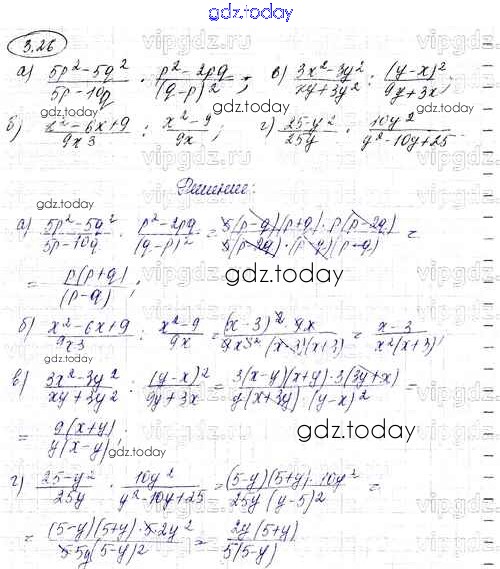 gdz.today
3.26
а) (5p²-5q²)/(5p-10q) · (p²-2pq)/(q-p)²; в) (3x²-3y²)/(xy+3y²) : (y-x)²/(9y+3x);
gdz.today
б) (x²-6x+9)/(9x³) : (x²-9)/(9x); г) (25-y²)/(25y) · (10y²)/(y²-10y+25)
gdz.today
Решение:
gdz.today
а) (5p²-5q²)/(5p-10q) · (p²-2pq)/(q-p)² = (5(p-q)(p+q)·p(p-2q))/(5(p-2q)·(p-q)(p-q)) =
= (p(p+q))/(p-q);
gdz.today
б) (x²-6x+9)/(9x³) : (x²-9)/(9x) = ((x-3)²·9x)/(9x³(x-3)(x+3)) = (x-3)/(x²(x+3));
в) (3x²-3y²)/(xy+3y²) : (y-x)²/(9y+3x) = (3(x-y)(x+y)·3(3y+x))/(y(x+3y)·(y-x)²) =
gdz.today
= (9(x+y))/(y(x-y));
gdz.today
г) (25-y²)/(25y) · (10y²)/(y²-10y+25) = ((5-y)(5+y)·10y²)/(25y(y-5)²) =
= ((5-y)(5+y)·5·2y²)/(5·5y(5-y)²) = (2y(5+y))/(5(5-y))
gdz.today